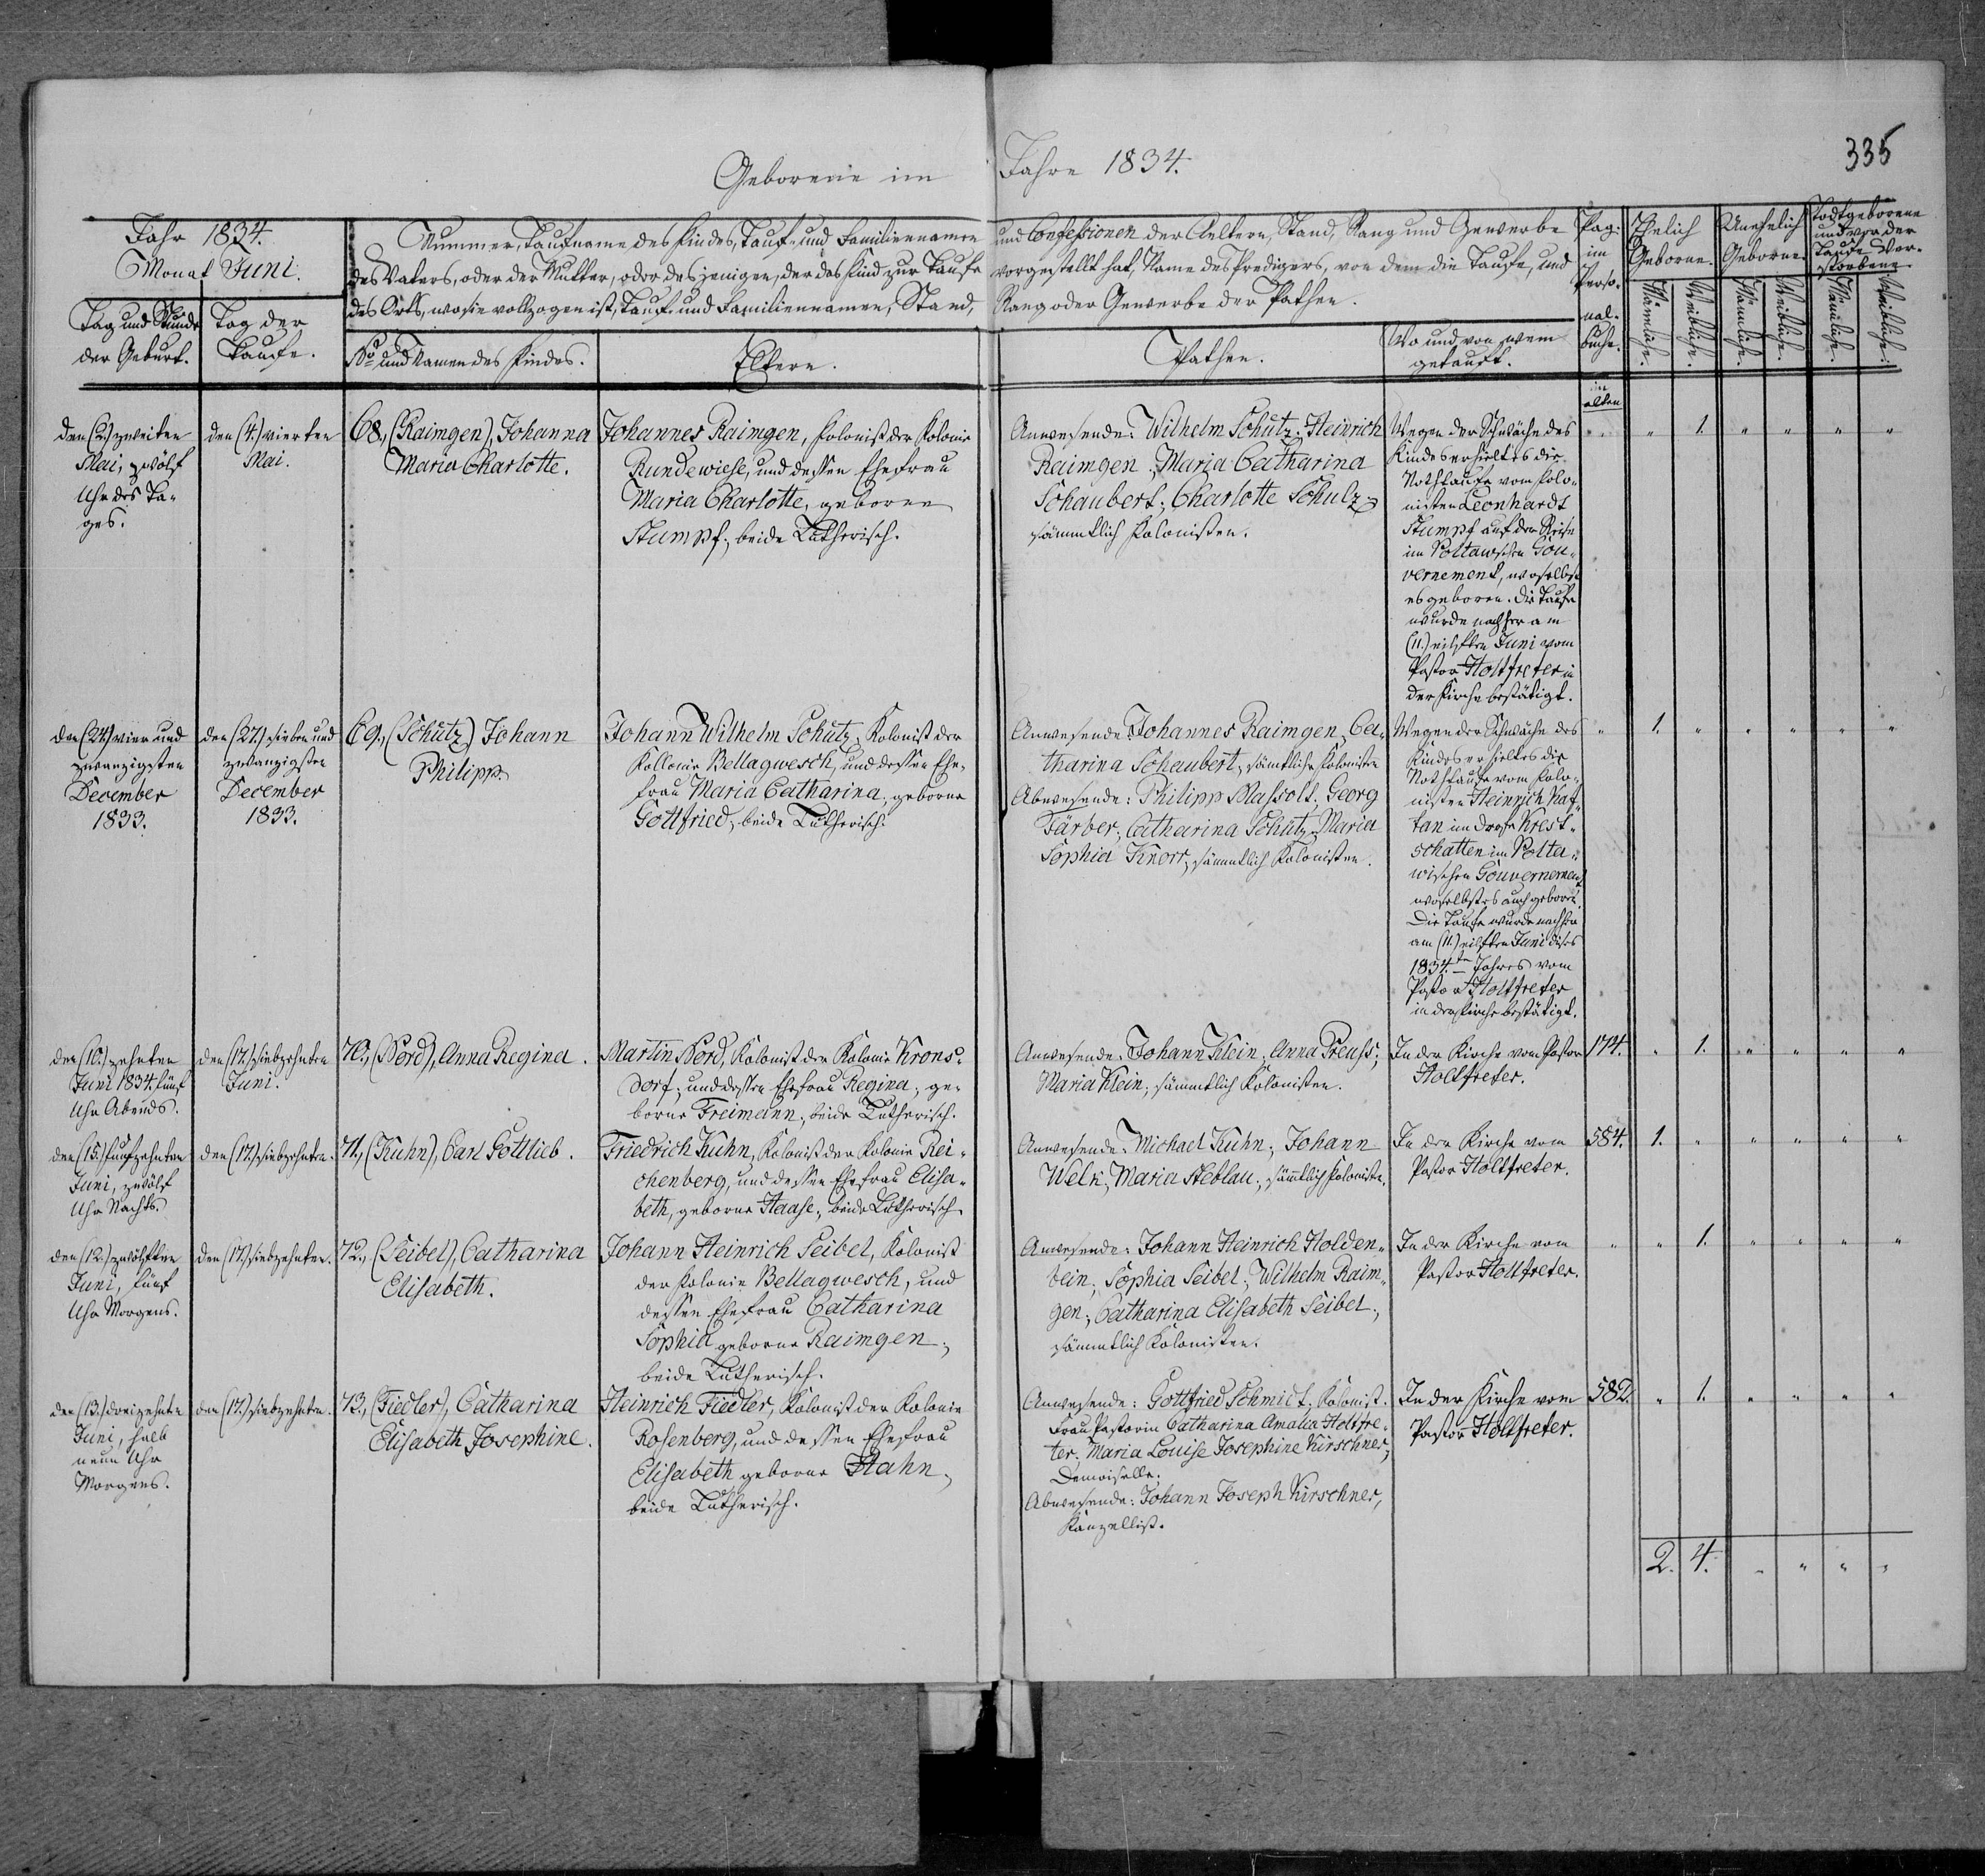 335
Geborene im Jahre 1834.
Jahr 1834.
Monat Juni.
Tag und Stunde
der Geburt.
Tag der
Taufe.
Nummer, Taufname des Kindes, Tauf- und Familiennamen und Confessionen der Aeltern, Stand, Rang und Gewerbe
des Vaters, oder der Mutter, oder desjenigen, der das Kind zur Taufe vorgestellt hat, Name des Predigers, von dem die Taufe, und
des Orts, wo sie vollzogen ist, Tauf- und Familiennamen, Stand, Rang oder Gewerbe der Pathen.
No und Namen des Kindes.
Eltern.
Pathen.
Wo und von wem
getauft.
Pag:
im
Perso-
nal-
buche.
Ehelich
Geborne.
Unehelich
Geborne.
Todtgeborene
und vor der
Taufe Ver-
storbene
Männliche.
Weibliche.
Männliche.
Weibliche.
Männliche.
Weibliche.
im
alten
den (2.) zweiten
Mai, zwölf
Uhr des Ta-
ges.
den (4.) vierten
Mai.
68., (Raimgen), Johanna
Maria Charlotte.
Johannes Raimgen, Kolonist der Kolonie
Rundewiese, und dessen Ehefrau
Maria Charlotte, geborne
Stumpf; beide Lutherisch.
Anwesende: Wilhelm Schütz; Heinrich
Raimgen; Maria Catharina
Schaubert; Charlotte Schulz;
sämmtlich Kolonisten.
Wegen der Schwäche des
Kindes erhielt es die
Nothtaufe vom Kolo-
nisten Leonhardt
Stumpf auf der Reise
im Poltawschen Gou-
vernement, woselbst
es geboren. Die Taufe
wurde nachher am
(11.) eilften Juni vom
Pastor Holtfreter in
der Kirche bestätigt.
" " 1. " " " "
den (24.) vier und
zwanzigsten
December
1833.
den (27.) sieben und
zwanzigsten
December
1833.
69., (Schütz) Johann
Philipp.
Johann Wilhelm Schütz, Kolonist der
Kollonie Bellagwesch, und dessen Ehe-
frau Maria Catharina, geborne
Gottfried; beide Lutherisch.
Anwesende: Johannes Raimgen; Ca-
tharina Schaubert, sämtliche Kolonisten
Abwesende: Philipp Massolt; Georg
Färber; Catharina Schütz; Maria
Sophia Knorr, sämmtlich Kolonisten.
Wegen der Schwäche des
Kindes erhielt es die
Nothtaufe vom Kolo-
nisten Heinrich Kaf-
tan im Dorfe Krest-
schatten im Polta-
wischen Gouvernement,
woselbst es auch geboren.
Die Taufe wurde nachher
am (11.) eilften Juni dieses
1834.ten Jahres vom
Pastor Holtfreter
in der Kirche bestätigt.
" 1. " " " " "
den (10.) zehnten
Juni 1834. fünf
Uhr Abends.
den (17.) siebzehnten
Juni.
70., (Nord), Anna Regina.
Martin Nord, Kolonist der Kolonie Krons-
dorf; und dessen Ehefrau Regina; ge-
borne Freimann; beide Lutherisch.
Anwesende: Johann Klein; Anna Preuss;
Maria Klein; sämmtlich Kolonisten.
In der Kirche vom Pastor
Holtfreter.
174. " 1. " " " "
den (15.) funfzehnten
Juni, zwölf
Uhr Nachts.
den (17.) siebzehnten.
71., (Kuhn), Carl Gottlieb.
Friedrich Kuhn, Kolonist der Kolonie Rei-
chenberg, und dessen Ehefrau Elisa-
beth, geborne Haase; beide Lutherisch.
Anwesende: Michael Kuhn; Johann
Welk; Maria Heblau; sämtlich Kolonisten.
In der Kirche vom
Pastor Holtfreter.
584. 1. " " " " "
den (12.) zwölften
Juni, fünf
Uhr Morgens.
den (17.) siebzehnten.
72., (Seibel), Catharina
Elisabeth.
Johann Heinrich Seibel, Kolonist
der Kolonie Bellagwesch, und
dessen Ehefrau Catharina
Sophia geborne Raimgen;
beide Lutherisch.
Anwesende: Johann Heinrich Holden-
bein; Sophia Seibel; Wilhelm Raim-
gen; Catharina Elisabeth Seibel;
sämmtlich Kolonisten.
In der Kirche vom
Pastor Holtfreter.
" " 1. " " " "
den (13.) dreizehnten
Juni, halb
neun Uhr
Morgens.
den (17.) siebzehnten.
73., (Fiedler), Catharina
Elisabeth Josephine.
Heinrich Fiedler, Kolonist der Kolonie
Rosenberg, und dessen Ehefrau
Elisabeth geborne Hahn;
beide Lutherisch.
Anwesende: Gottfried Schmidt, Kolonist.
Frau Pastorin Catharina Amalia Holtfre-
ter; Maria Louise Josephine Kirschner,
Demoiselle.
Abwesende: Johann Joseph Kirschner,
Kanzellist.
In der Kirche vom
Pastor Holtfreter.
582. " 1. " " " "
2. 4. " " " "